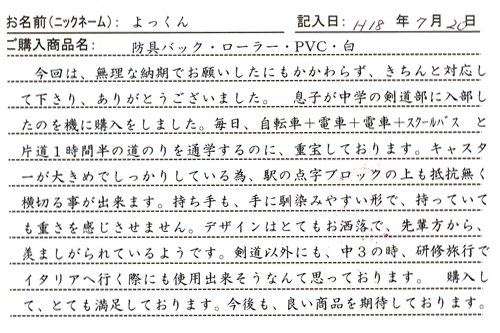 お名前(ニックネーム): よっくん 記入日: H18 年 7 月 20 日
ご購入商品名: 防具バック・ローラー・PVC・白
今回は、無理な納期でお願いしたにもかかわらず、きちんと対応し
て下さり、ありがとうございました。 息子が中学の剣道部に入部し
たのを機に購入をしました。毎日、自転車+電車+電車+スクールバス と
片道1時間半の道のりを通学するのに、重宝しております。キャスタ
ーが大きめでしっかりしている為、駅の点字ブロックの上も抵抗無く
横切る事が出来ます。持ち手も、手に馴染みやすい形で、持っていて
も重さを感じさせません。デザインはとてもお洒落で、先輩方から、
羨ましがられているようです。剣道以外にも、中3の時、研修旅行で
イタリアへ行く際にも使用出来そうなんて思っております。 購入し
て、とても満足しております。今後も、良い商品を期待しております。